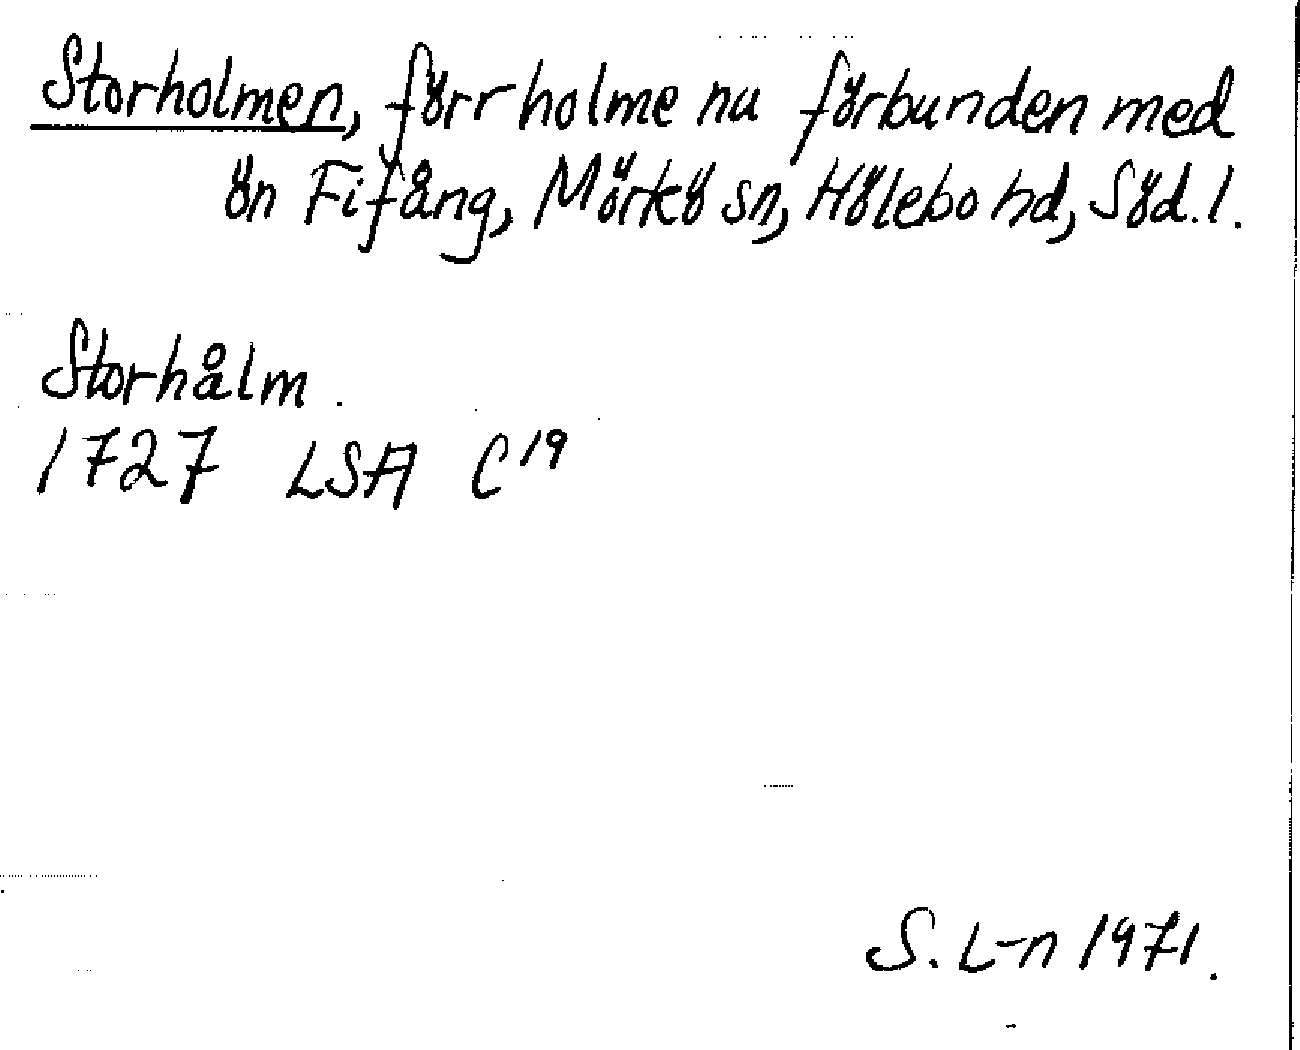 Storholmen, förr holme nu förbunden med
ön Fifång, Mörkö sn, Hölebo hd, Söd. l.
Storhålm.
1727 LSA C 19
S. L-n 1971.